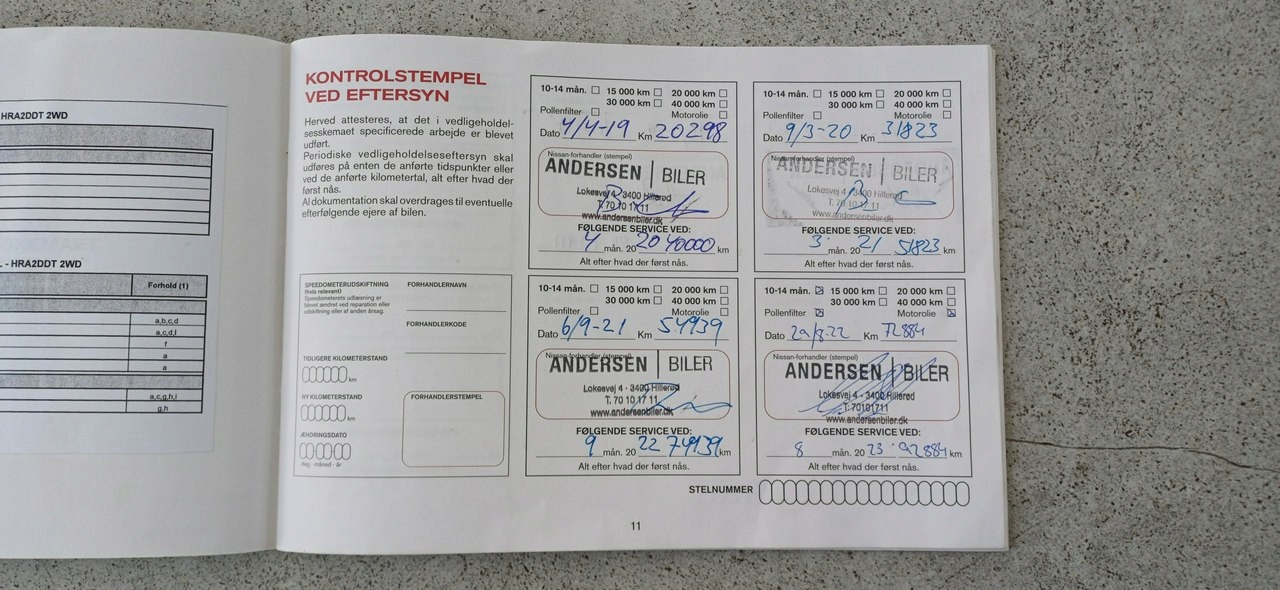 HRA2DDT 2WD
- HRA2DDT 2WD
Forhold (1)
a,b,c,d
a,c,d,l
f
a
a
a,c,g,h,i
g,h
KONTROLSTEMPEL
VED EFTERSYN
Herved attesteres, at det i vedligeholdel-
sesskemaet specificerede arbejde er blevet
udført.
Periodiske vedligeholdelseseftersyn skal
udføres på enten de anførte tidspunkter eller
ved de anførte kilometertal, alt efter hvad der
først nås.
Al dokumentation skal overdrages til eventuelle
efterfølgende ejere af bilen.
SPEEDOMETERUDSKIFTNING
(hvis relevant)
Speedometerets udlæsning er
blevet ændret ved reparation eller
udskiftning eller af anden årsag.
TIDLIGERE KILOMETERSTAND
km
NY KILOMETERSTAND
km
ÆNDRINGSDATO
dag - måned - år
FORHANDLERNAVN
FORHANDLERKODE
FORHANDLERSTEMPEL
10-14 mån. 15 000 km 20 000 km
30 000 km 40 000 km
Pollenfilter Motorolie
Dato 4/4-19 Km 20298
Nissan-forhandler (stempel)
ANDERSEN | BILER
Lokesvej 4 · 3400 Hillerød
T. 70 10 17 11
www.andersenbiler.dk
FØLGENDE SERVICE VED:
4 mån. 20 20 40000 km
Alt efter hvad der først nås.
10-14 mån. 15 000 km 20 000 km
30 000 km 40 000 km
Pollenfilter Motorolie
Dato 9/3-20 Km 31823
Nissan-forhandler (stempel)
ANDERSEN | BILER
Lokesvej 4 · 3400 Hillerød
T. 70 10 17 11
www.andersenbiler.dk
FØLGENDE SERVICE VED:
3 mån. 20 21 51823 km
Alt efter hvad der først nås.
10-14 mån. 15 000 km 20 000 km
30 000 km 40 000 km
Pollenfilter Motorolie
Dato 6/9-21 Km 54939
Nissan-forhandler (stempel)
ANDERSEN | BILER
Lokesvej 4 · 3400 Hillerød
T. 70 10 17 11
www.andersenbiler.dk
FØLGENDE SERVICE VED:
9 mån. 20 22 74939 km
Alt efter hvad der først nås.
10-14 mån. 15 000 km 20 000 km
30 000 km 40 000 km
Pollenfilter Motorolie
Dato Km 72884
Nissan-forhandler (stempel)
ANDERSEN | BILER
Lokesvej 4 - 3400 Hillerød
T. 70101711
www.andersenbiler.dk
FØLGENDE SERVICE VED:
8 mån. 20 23 92884 km
Alt efter hvad der først nås.
STELNUMMER
11